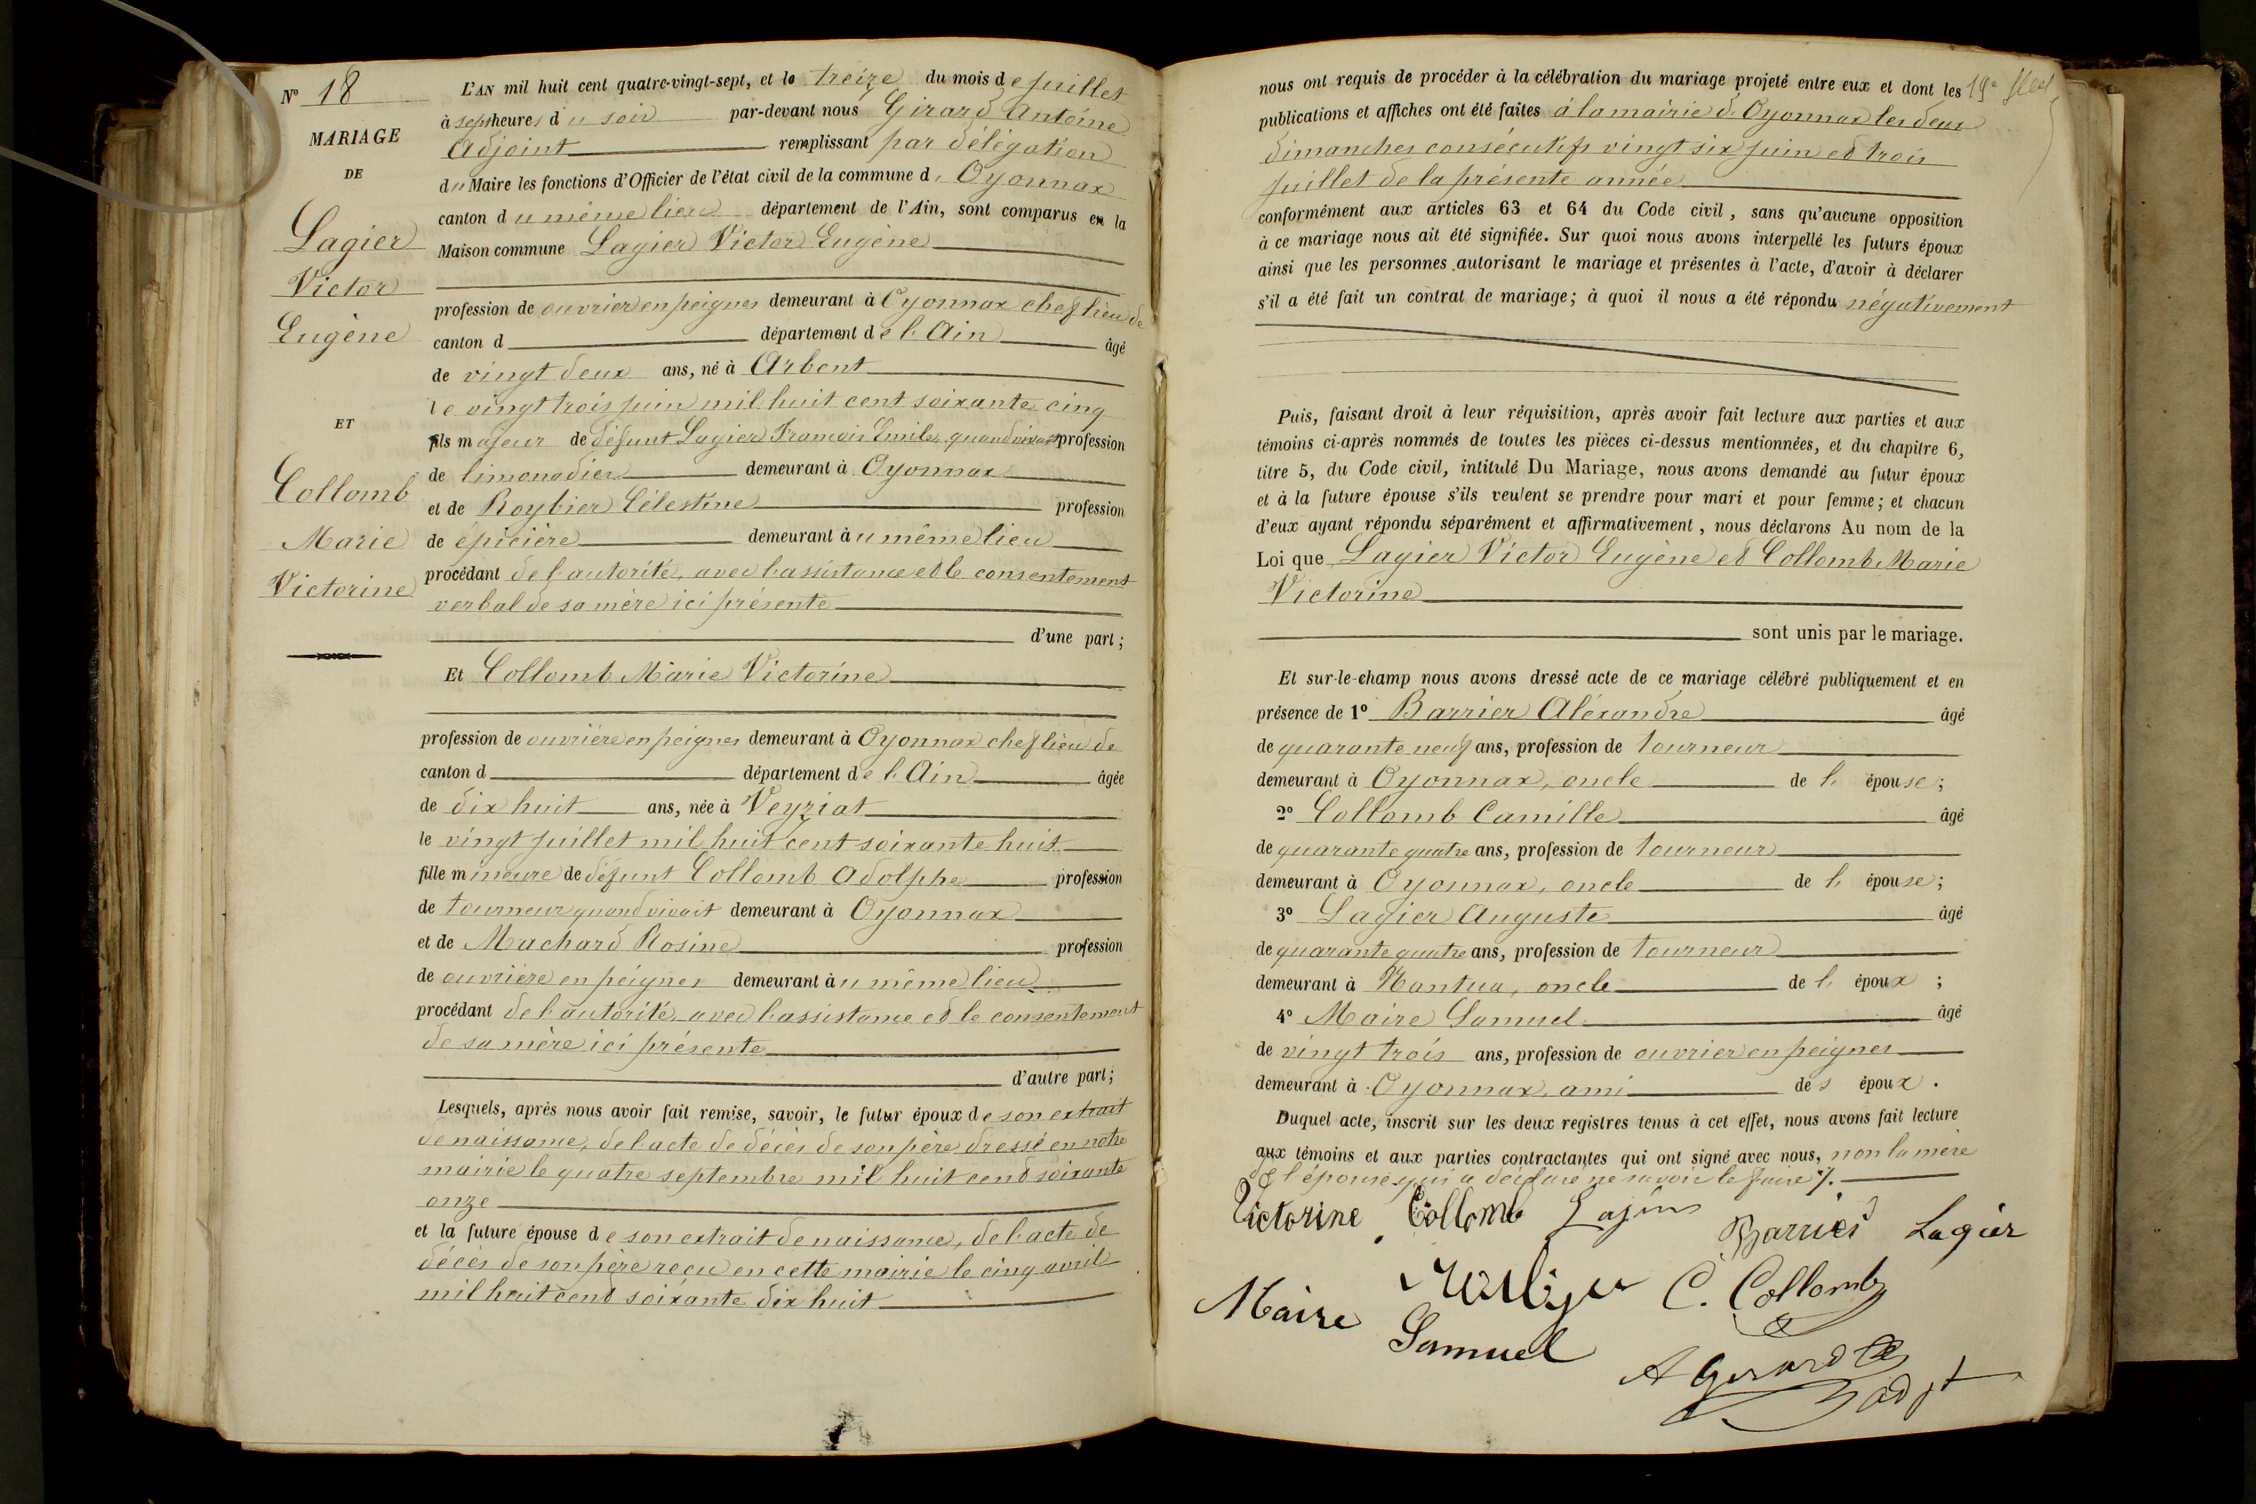 N° 18
MARIAGE
DE
Lagier
Victor
Eugène
ET
Collomb
Marie
Victorine
L'AN mil huit cent quatre-vingt-sept, et le treize du mois de juillet
à sept heures du soir par-devant nous Girard Antoine
Adjoint remplissant par délégation
du Maire les fonctions d'Officier de l'état civil de la commune d'Oyonnax
canton du même lieu département de l'Ain, sont comparus en la
Maison commune Lagier Victor Eugène
profession de ouvrier en peignes demeurant à Oyonnax chef lieu de
canton d département de l'Ain âgé
de vingt deux ans, né à Arbent
le vingt trois juin mil huit cent soixante cinq
fils majeur de défunt Lagier François Emile, quand vivait profession
de limonadier demeurant à Oyonnax
et de Roybier Célestine profession
de épicière demeurant au même lieu
procédant de l'autorité, avec l'assistance et le consentement
verbal de sa mère ici présente
d'une part;
Et Collomb Marie Victorine
profession de ouvrière en peignes demeurant à Oyonnax chef lieu de
canton d département de l'Ain âgée
de dix huit ans, née à Veyziat
le vingt juillet mil huit cent soixante huit
fille mineure de défunt Collomb Adolphe profession
de tourneur quand vivait demeurant à Oyonnax
et de Machard Rosine profession
de ouvrière en peignes demeurant au même lieu
procédant de l'autorité, avec l'assistance et le consentement
de sa mère ici présente
d'autre part;
Lesquels, après nous avoir fait remise, savoir, le futur époux de son extrait
de naissance, de l'acte de décès de son père dressé en notre
mairie le quatre septembre mil huit cent soixante
onze
et la future épouse de son extrait de naissance, de l'acte de
décès de son père reçu en cette mairie le cinq avril
mil huit cent soixante dix huit
nous ont requis de procéder à la célébration du mariage projeté entre eux et dont les
publications et affiches ont été faites à la mairie d'Oyonnax les deux
dimanches consécutifs vingt six juin et trois
juillet de la présente année
conformément aux articles 63 et 64 du Code civil, sans qu'aucune opposition
à ce mariage nous ait été signifiée. Sur quoi nous avons interpellé les futurs époux
ainsi que les personnes autorisant le mariage et présentes à l'acte, d'avoir à déclarer
s'il a été fait un contrat de mariage; à quoi il nous a été répondu négativement
Puis, faisant droit à leur réquisition, après avoir fait lecture aux parties et aux
témoins ci-après nommés de toutes les pièces ci-dessus mentionnées, et du chapitre 6,
titre 5, du Code civil, intitulé Du Mariage, nous avons demandé au futur époux
et à la future épouse s'ils veulent se prendre pour mari et pour femme; et chacun
d'eux ayant répondu séparément et affirmativement, nous déclarons Au nom de la
Loi que Lagier Victor Eugène et Collomb Marie
Victorine
sont unis par le mariage.
Et sur-le-champ nous avons dressé acte de ce mariage célébré publiquement et en
présence de 1° Barrier Aléxandre âgé
de quarante neuf ans, profession de tourneur
demeurant à Oyonnax, oncle de l'épouse;
2° Collomb Camille âgé
de quarante quatre ans, profession de tourneur
demeurant à Oyonnax, oncle de l'épouse;
3° Lagier Auguste âgé
de quarante quatre ans, profession de tourneur
demeurant à Nantua, oncle de l'époux;
4° Maire Samuel âgé
de vingt trois ans, profession de ouvrier en peignes
demeurant à Oyonnax, ami des époux.
Duquel acte, inscrit sur les deux registres tenus à cet effet, nous avons fait lecture
aux témoins et aux parties contractantes qui ont signé avec nous, non la mère
de l'épouse qui a déclaré ne savoir le faire ./.
Victorine Collomb Barrier Lagier
C. Collomb
Maire
Samuel
A Girard adjt